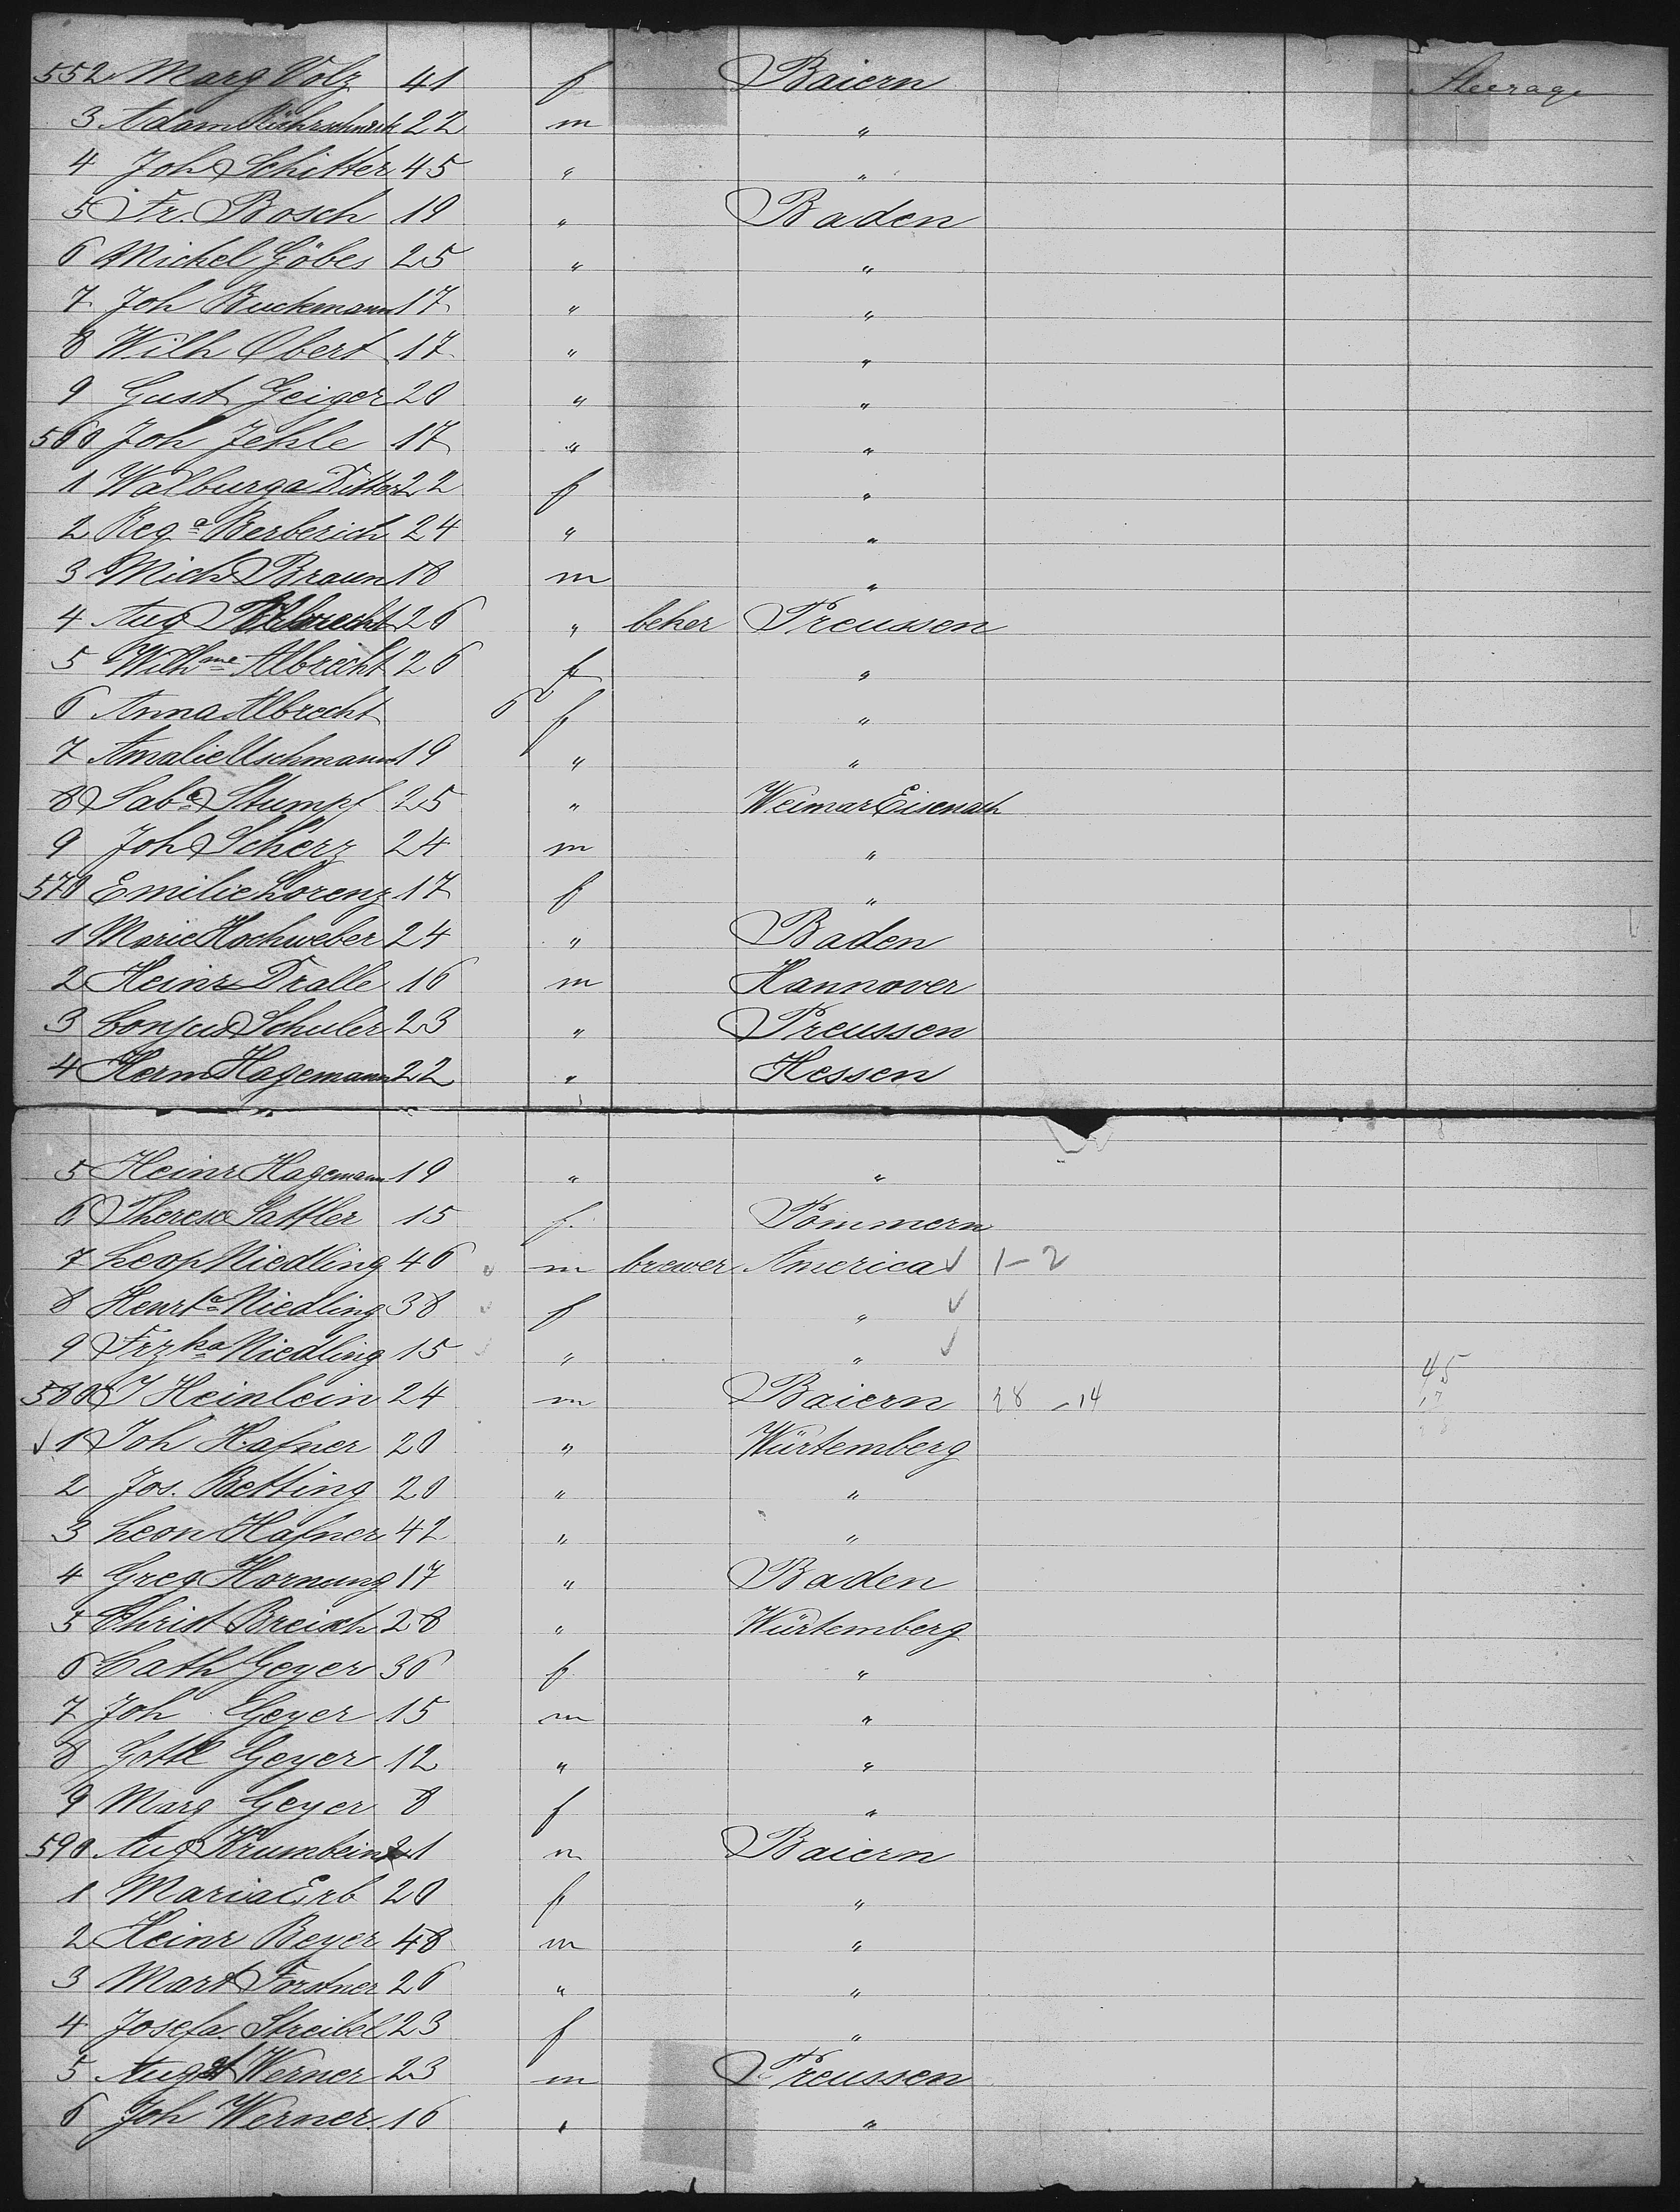 552 Marg Volz 41 f Baiern Steerage
3 Adam 22 m "
4 Joh Schitter 45 " "
5 Fr. Bosch 19 " Baden
6 Michel Göbes 25 " "
7 Joh Buckmann 17 " "
8 Wilh Obert 17 " "
9 Gust Geiger 20 " "
560 Joh Jehle 17 " "
1 Walburga Ditter 22 f "
2 Rega Berberich 24 " "
3 Mich Braun 18 m "
4 Aug Albrecht 26 " beker Preussen
5 Wilhme Albrecht 26 f "
6 Anna Albrecht 6 f "
7 Amalie Uschmann 19 " "
8 Sabe Stumpf 25 " Weimar Eisenach
9 Joh Scherz 24 m "
570 Emilie Lorenz 17 f "
1 Marie Hochweber 24 " Baden
2 Heinr Dralle 16 m Hannover
3 Schuler 23 " Preussen
4 Herm Hagemann 22 " Hessen
5 Heinr Hagemann 19 " "
6 Therese Sattler 15 f. Pommern
7 Leop Niedling 46 m brewer America 1-2
8 Henrte Niedling 38 f "
9 Frzka Niedling 15 " "
580 J Heinlein 24 m Baiern 28 - 14 45
1 Joh Hafner 20 " Würtemberg
2 Jos. Betting 20 " "
3 Leon Hafner 42 " "
4 Greg Hornung 17 " Baden
5 Christ Breisch 28 " Würtemberg
6 Cath Geyer 36 f "
7 Joh Geyer 15 m "
8 Gottl Geyer 12 " "
9 Marg Geyer 8 f "
590 Aug Krumbein 21 m Baiern
1 Maria Erb 20 f "
2 Heinr Beyer 48 m "
3 Mart Forstner 26 " "
4 Josefa Streibel 23 f "
5 August Werner 23 m Preussen
6 Joh Werner 16 " "